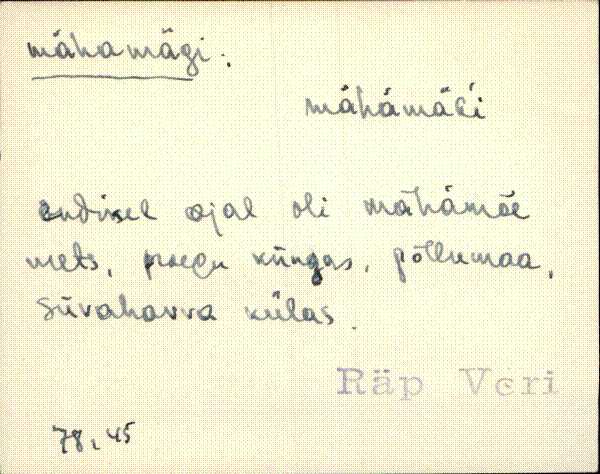 mähamägi.
mähämäǵi
endisel ajal oli mähämäe
mets, praegu küngas, põllumaa,
Süvahavva külas.
Räp Veri
78, 45